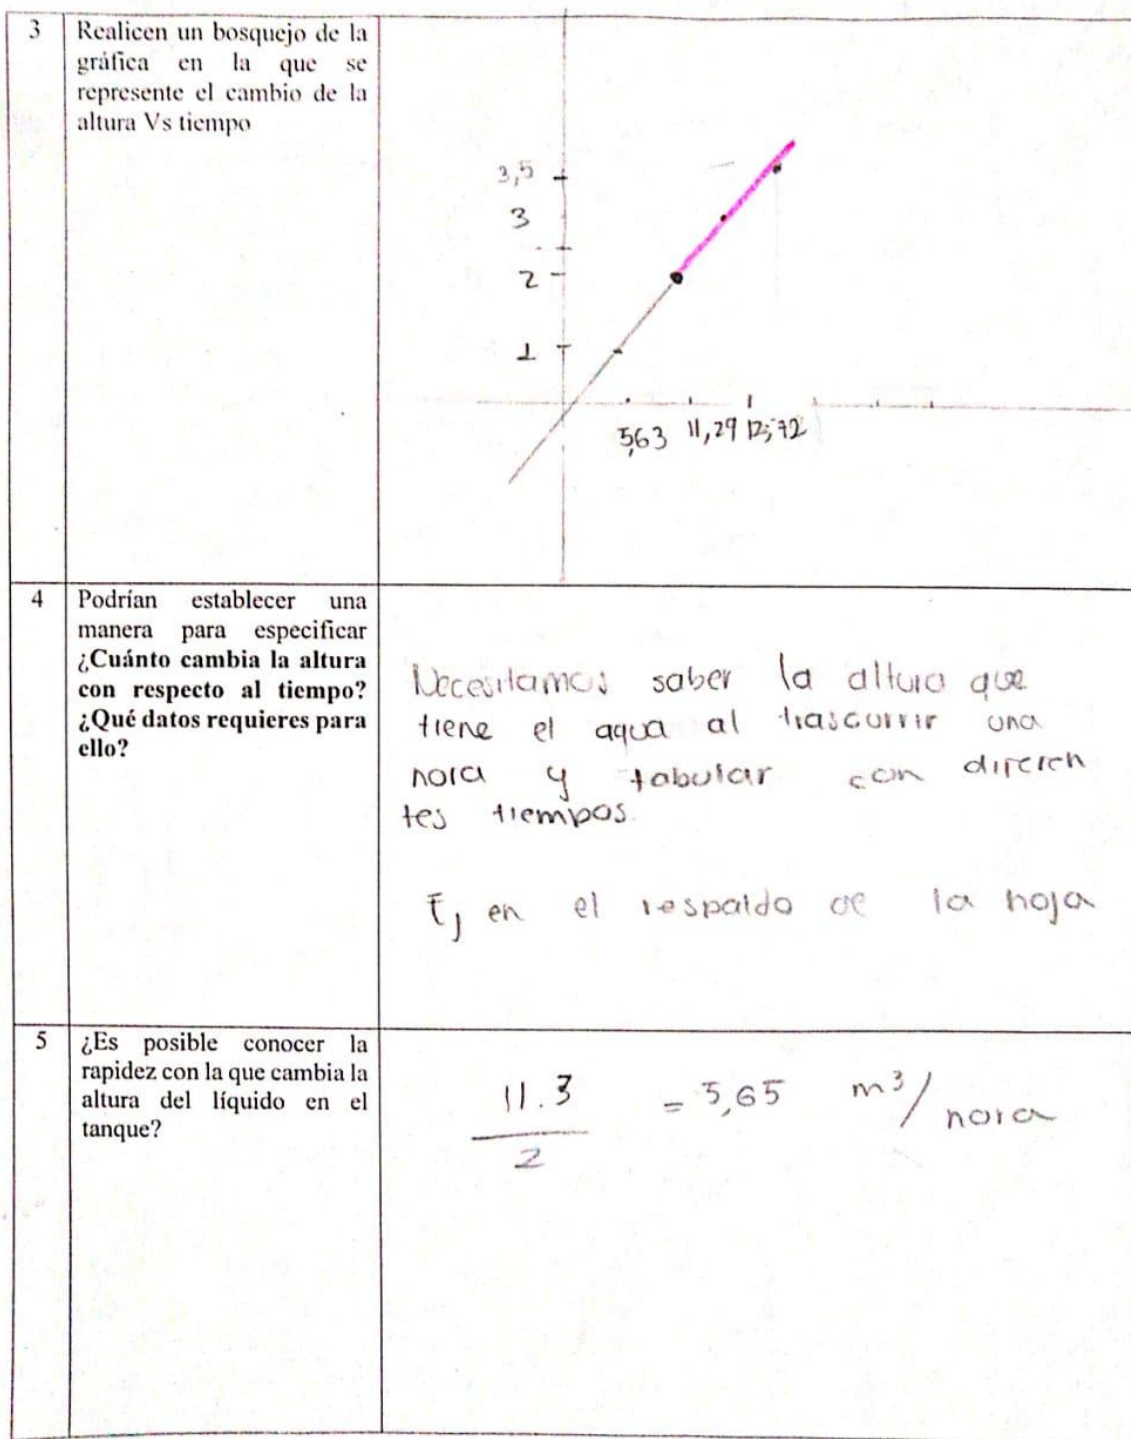 3
Realicen un bosquejo de la
gráfica en la que se
represente el cambio de la
altura Vs tiempo
3,5
3
2
1
5,63 11,29 12,72
4
Podrían establecer una
manera para especificar
¿Cuánto cambia la altura
con respecto al tiempo?
¿Qué datos requieres para
ello?
Necesitamos saber la altura que
tiene el agua al trascurrir una
hora y tabular con diferen
tes tiempos.
Ej en el respaldo de la hoja
5
¿Es posible conocer la
rapidez con la que cambia la
altura del líquido en el
tanque?
11.3
= 5,65 m³/hora
2